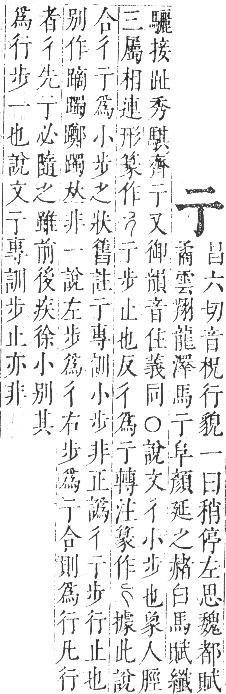 亍
昌六切音柷行貌一曰稍停左思魏都賦
矞雲翔龍澤馬亍阜顏延之赭白馬賦纖
驪接趾秀騏齊亍又御韻音住義同〇說文彳小步也象人脛
三屬相連形篆作彳亍步止也反彳爲亍轉注篆作亍據此說
合彳亍爲小步之狀舊註亍專訓小步非正譌彳亍步行止也
別作蹢躅躑躅𠀤非一說左步爲彳右步爲亍合則爲行凡行
者彳先亍必隨之雖前後疾徐小別其
爲行步一也說文亍專訓步止亦非